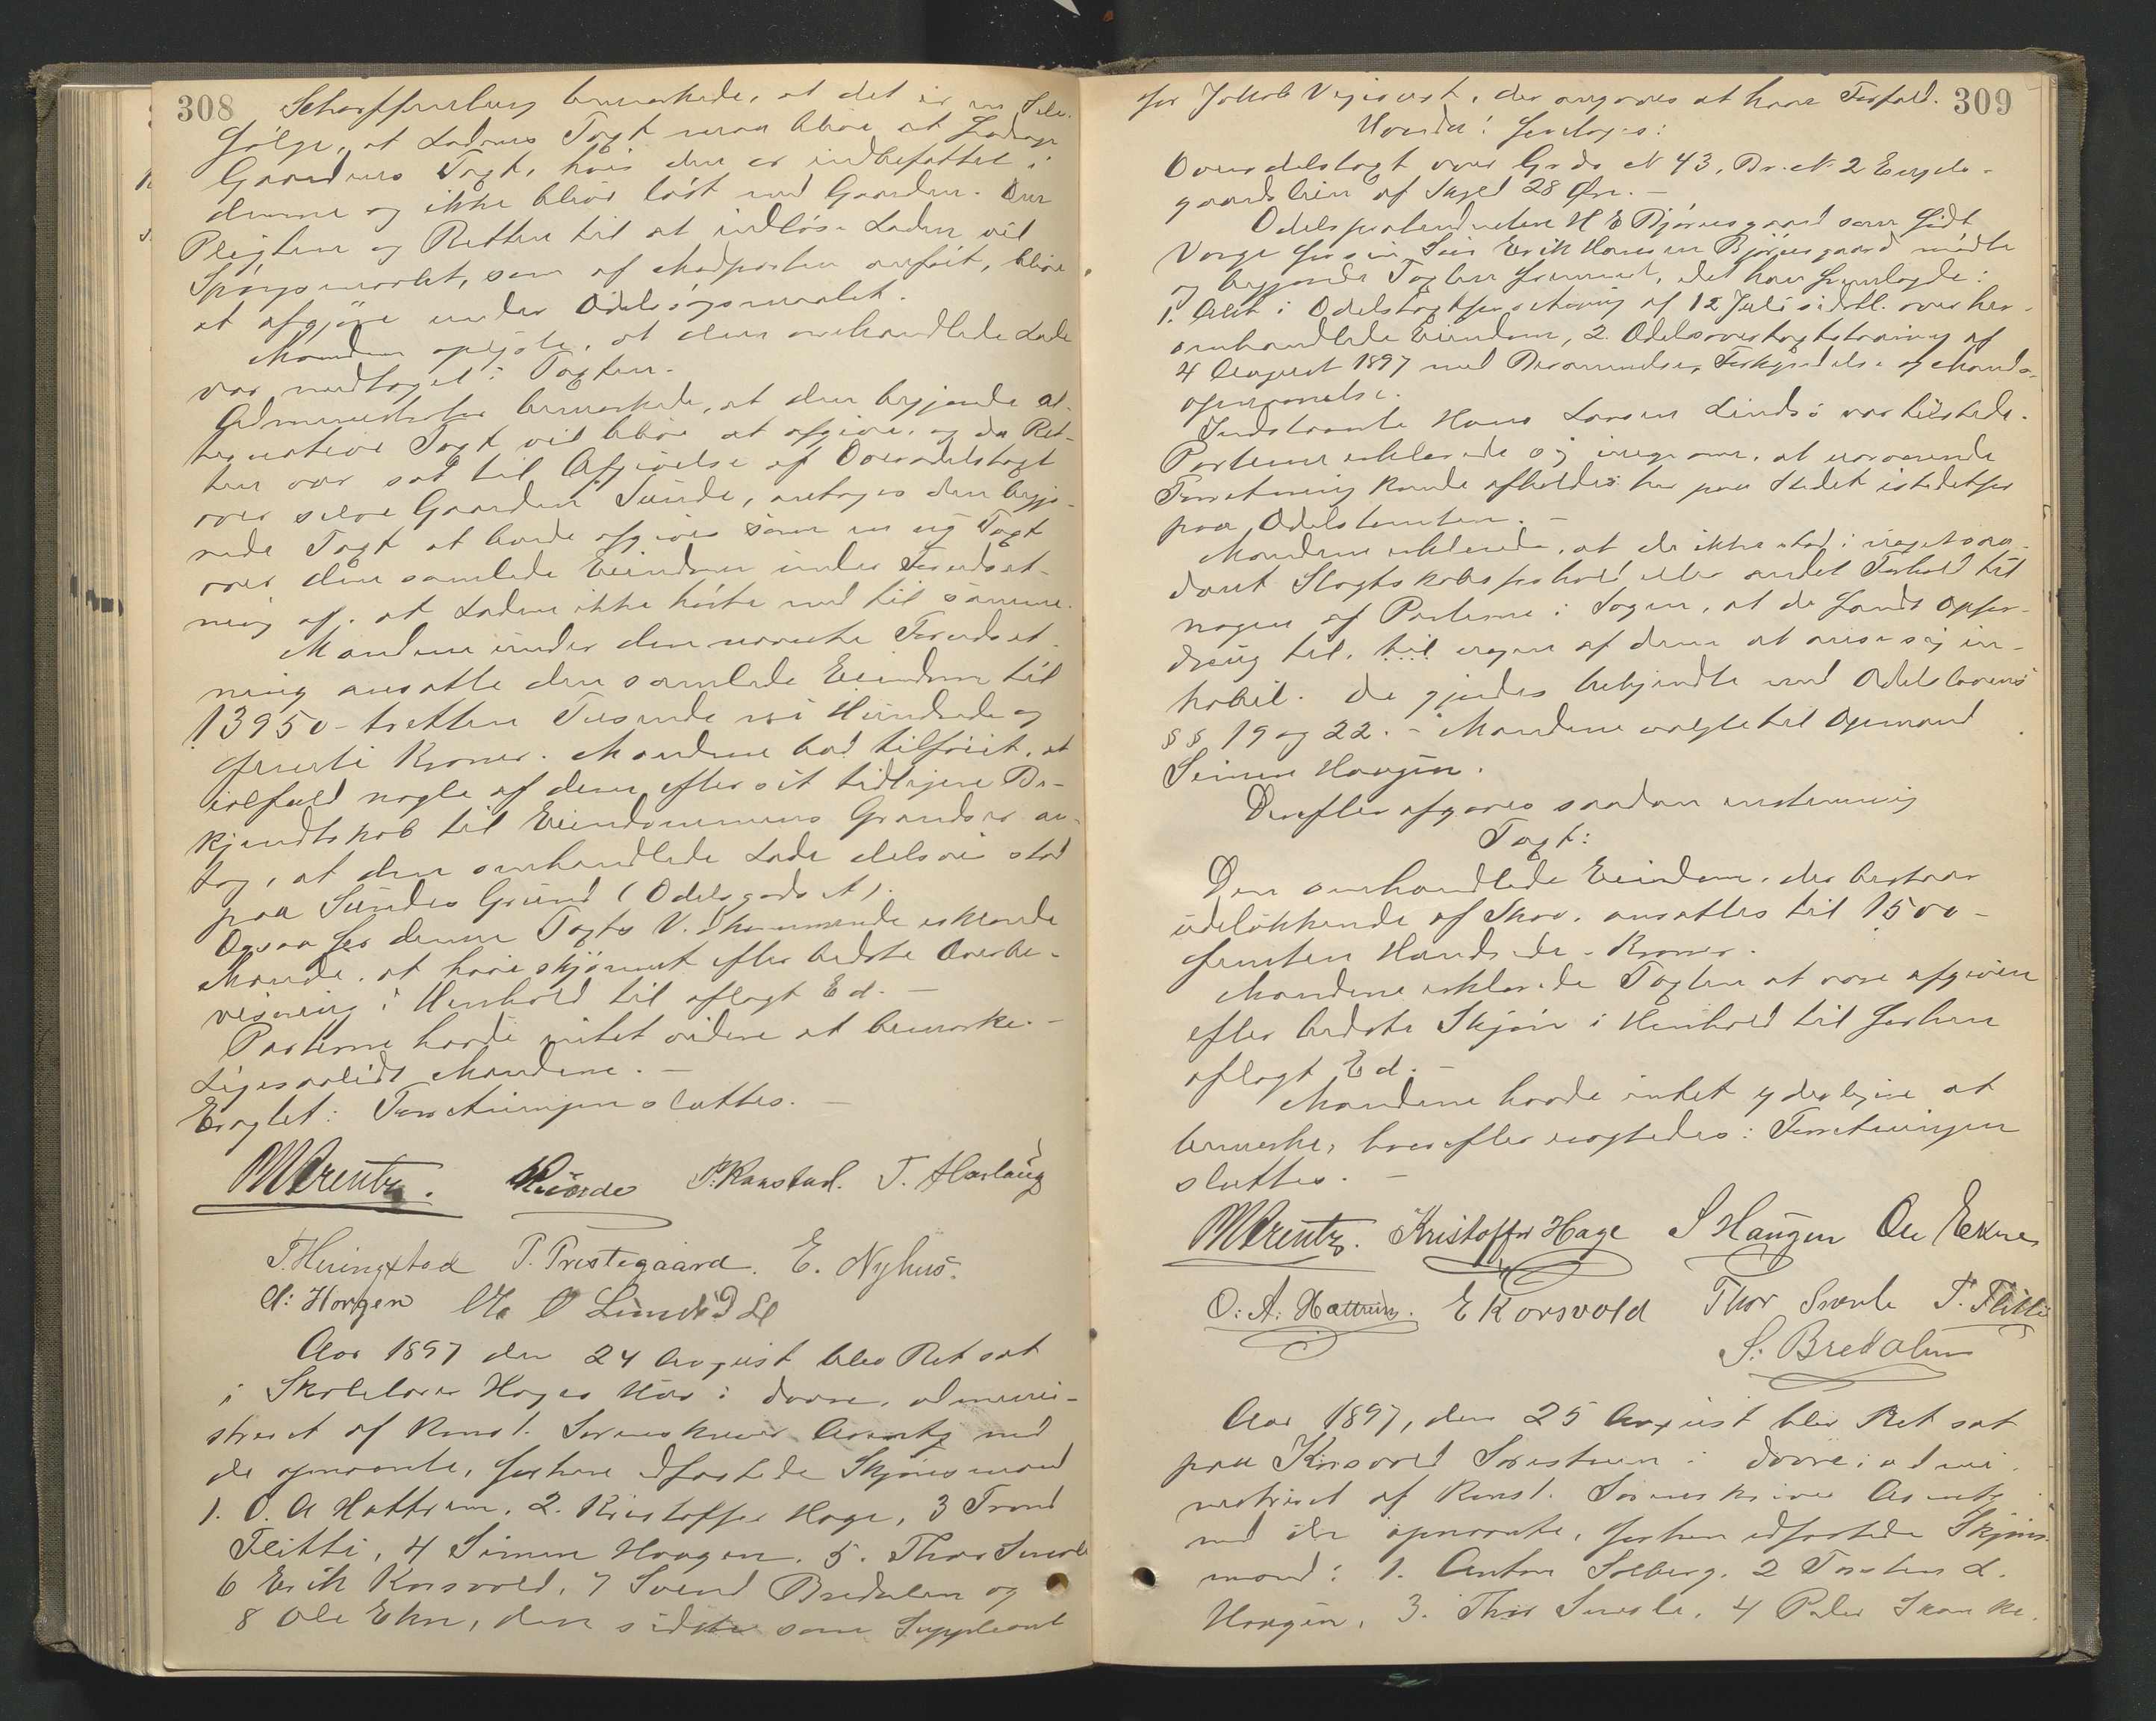 308
Scharffenberg bemærkede, at det er en Selv-
følge, at Ladens Taxt maa blive at fradrage
Gaardens Taxt, hvis den er indbefattet i
denne og ikke bliver løst med Gaarden. Om
Pligten og Retten til at indløse Laden vil
Spørgsmaalet, som af Modparten anført, blive
at afgjøre under Odelssøgsmaalet.
Mændene oplyste, at den omhandlede Lade
var medtaget i Taxten.
Administrator bemærkede, at den begjærede al-
ternative Taxt vil blive at afgive, og da Ret-
ten var sat til Afgivelse af Overodelstaxt
over selve Gaarden Sunde, antages den begjæ-
rede Taxt at burde afgives som en ny Taxt
over den samlede Eiendom under Forudsæt-
ning af, at Laden ikke hørte med til samme.
Mændene under den nævnte Forudsæt-
ning ansatte den samlede Eiendom til
13950 - tretten Tusende ni Hundrede og
femti Kroner. Mændene bad tilføiet, at
ialfald nogle af dem efter sit tidligere Be-
kjendtskab til Eiendommens Grændser an-
tog, at den omhandlede Lade delsvis stod
paa Sundes Grund (Odelsgodset).
Ogsaa for denne Taxts Vedkommende erklærede
Mænde. at have skjønnet efter bedste Overbe-
visning i Henhold til aflagt Ed. -
Parterne havde intet videre at bemærke. -
Ligesaalidt Mændene. -
Eragtet: Forretningen sluttes. -
MArentz. P. Kanstad. T. Harlaug
T. Heringstad P. Prestegaard. E. Nyhus.
A: Horgen
Aar 1897 den 24 August blev Ret sat
i Skolelærer Hages Hus i Dovre, admini-
streret af Konst. Sorenskriver Arentz med
de opnævnte, forhen edfæstede Skjønsmænd
1. O. A Hattrem, 2. Kristoffer Hage, 3 Trond
Flitti, 4 Simen Haugen, 5. Thor Snerle
6 Erik Korsvold, 7 Svend Bredalen og
8 Ole Ekre, den sidste som Suppleant
309
for Jakob Vigerust, der angaves at have Forfald.
Hvorda! foretoges:
Overodelstaxt over Grds N 43, Br. N 2 Engels-
gaardslien af Skyld 28 Øre. -
Odelsprætendenten H E Bjørnsgaard som født
Værge for sin Søn Erik Hansen Bjørnsgaard mødte
og begjærede Taxten fremmet, idet han fremlagde:
1. Akt i Odelstaxtforretning af 12 Juli sidstl. over her-
omhandlede Eiendom, 2. Odelsovertaxtstævning af
4 August 1897 med Berammelse, Forkyndelse og Mænds-
opnævnelse.
Indstævnte Hans Larsen Lindsø var tilstede.
Parterne erklærede sig enige om, at nærværende
Forretning kunde afholdes her paa Stedet istedetfor
paa Odelstomten. -
Mændene erklærede, at de ikke stod i noget saa-
dant Slægtskabsforhold eller andet Forhold til
nogen af Parterne i Sagen, at de fandt Opfor-
dring til, til nogen af dem at anse sig in-
habil. De gjordes bekjendte med Odelslovens
§§ 19 og 22. - Mændene valgte til Opmand
Simen Haugen.
Derefter afgaves saadan enstemmig
Taxt:
Den omhandlede Eiendom, der bestaar
udelukkende af Skov, ansattes til 1500 -
femten Hundrede - Kroner.
Mændene erklærede Taxten at være afgiven
efter bedste Skjøn i Henhold til forhen
aflagt Ed. -
Mændene havde intet yderligere at
bemærke, hvorefter eragtedes: Forretningen
sluttes. -
MArentz. Kristoffer Hage S Haugen Ole Ekre
O: A: Hattrem. E Korsvold Thor Snerle T. Flitti
S: Bredalen
Aar 1897, den 25 August blev Ret sat
paa Korsvold Søistuen i Dovre, admi-
nistreret af Konst. Sorenskriver Arentz
med de opnævnte, forhen edfæstede Skjøns-
mænd: 1. Anton Solberg, 2 Torsten L.
Haugen, 3. Thor Snerle, 4 Peder Skanke.